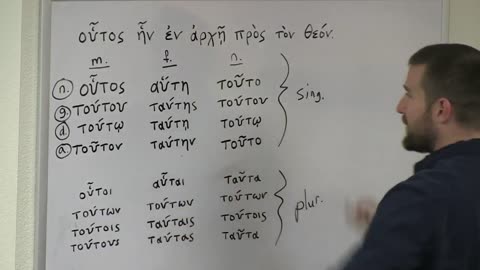 οὗτος ἦν ἐν ἀρχῇ πρὸς τὸν θεόν.
m. f. n.
n. οὗτος αὕτη τοῦτο
g. τούτου ταύτης τούτου
d. τούτῳ ταύτῃ τούτῳ
a. τοῦτον ταύτην τοῦτο
sing.
οὗτοι αὗται ταῦτα
τούτων τούτων τούτων
τούτοις ταύταις τούτοις
τούτους ταύτας ταῦτα
plur.